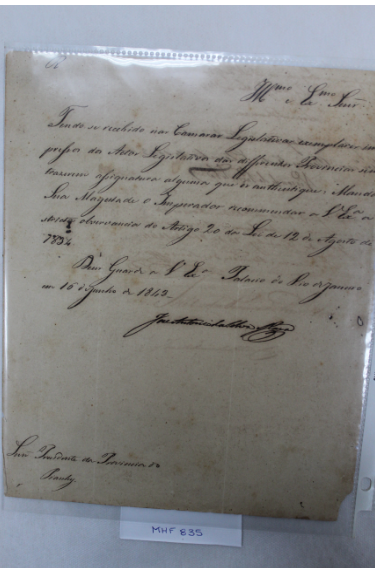 Illmo e Exmo Senr
Tendo se recebido nas Camaras Legislativas exemplares im-
pressos de Actos Legislativos das differentes Provincias sem
trazerem assignatura alguma que os authentique; Manda
Sua Magestade o Imperador recommendar a V. Exa a
observancia do Artigo 20 da Lei de 12 de Agosto de
1834.
Deos Guarde a V. Exa Palacio do Rio de Janeiro
em 16 de Junho de 1843.
José Antonio da Silva Maya
Senr Presidente da Provincia do
Piauhy
MHF 835